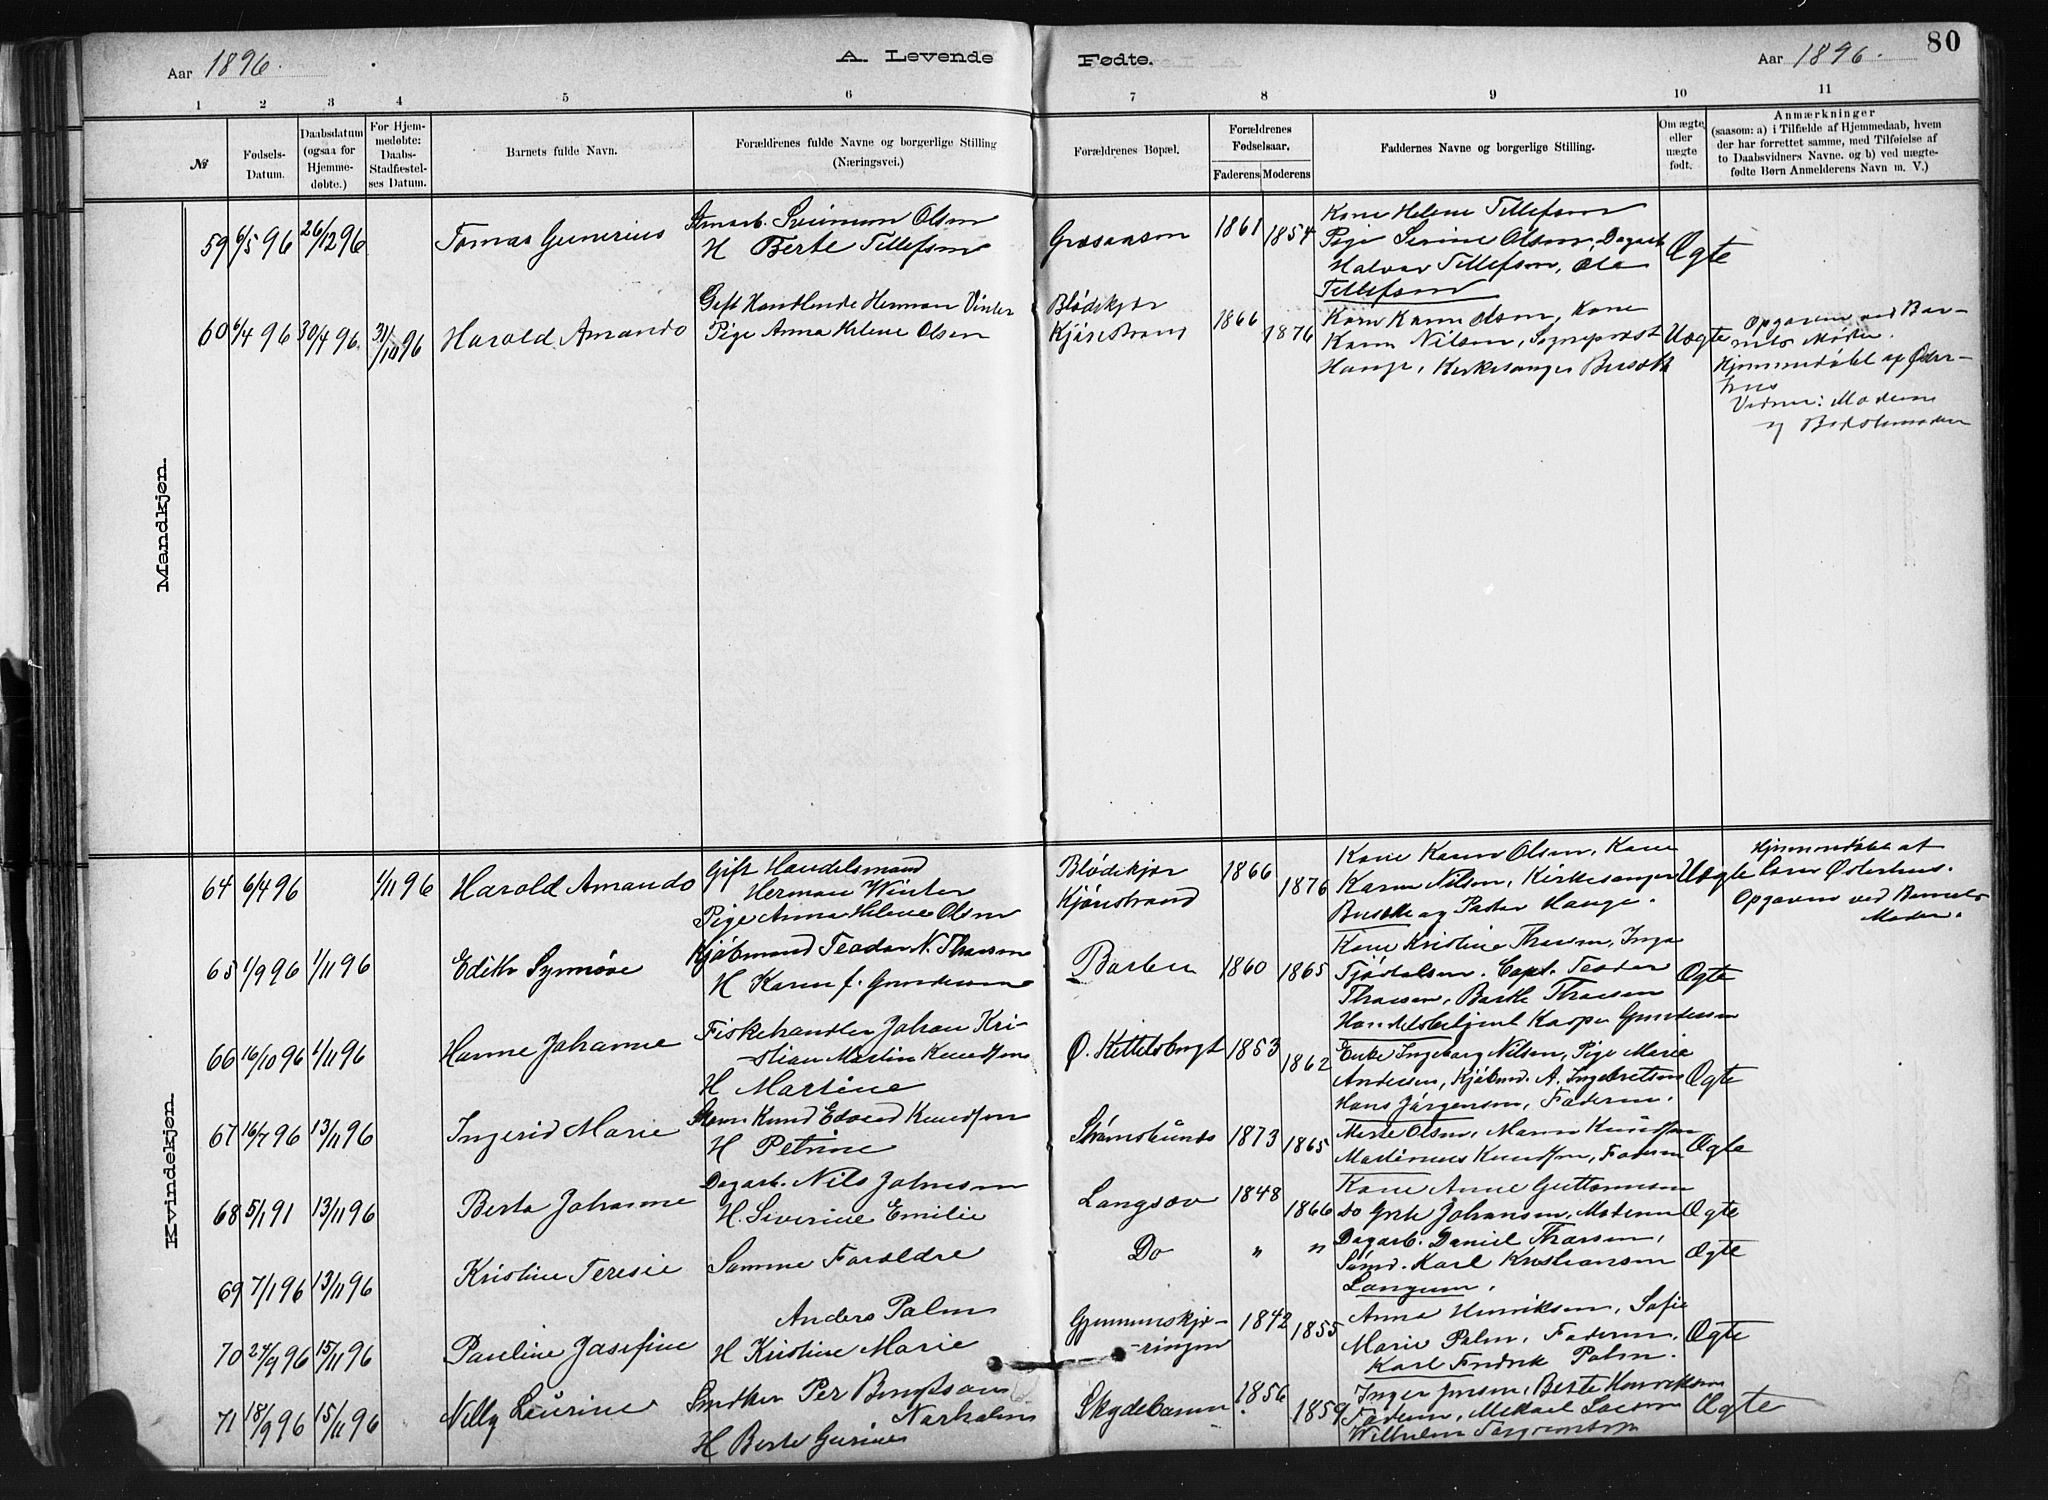 Aar 1896.
A. Levende
Fødte.
Aar 1896.
80
1 2 3 4 5 6 7 8 9 10 11
№
Fødsels-
Datum.
Daabsdatum
(ogsaa for
Hjemme-
døbte.)
For Hjem-
medøbte:
Daabs-
Stadfæstel-
ses Datum.
Barnets fulde Navn.
Forældrenes fulde Navne og borgerlige Stilling
(Næringsvei.)
Forældrenes Bopæl.
Forældrenes
Fødselsaar.
Faderens Moderens
Faddernes Navne og borgerlige Stilling.
Om ægte
eller
uægte
født.
Anmærkninger
(saasom: a) i Tilfælde af Hjemmedaab, hvem
der har forrettet samme, med Tilføielse af
to Daabsvidners Navne. og b) ved uægte-
fødte Børn Anmelderens Navn m. V.)
Mandkjøn.
59 6/5 96 26/12 96
Tomas Gunerius
Olsen
H Berte Tellefsen
1861 1854
Kone Helene Tellefsen
Pige Serine Olsen, Dagarb.
Halvor Tellefsen, Ole
Tellefsen
Ægte
60 6/4 96 30/4 96 31/10 96
Harald Amando
Gift Handlende Herman Vinter
Pige Anna Helene Olsen
Blødekjær
Kjøristrand
1866 1876
Kone Karen Olsen, Kone
Karen Nilsen, Sogneprest
Hauge, Kirkesanger
Uægte
Opgaven ved Bar-
nets Moder.
Hjemmedøbt af Øster-
hus
Vidner: Moderen
og Bedstemoderen
Kvindekjøn.
64 6/4 96 1/11 96
Harald Amando
Gift Handelsmand
Herman Winter
Pige Anna Helene Olsen
Blødekjær
Kjøristrand
1866 1876
Kone Karen Olsen, Kone
Karen Nilsen, Kirkesanger
og Pastor Hauge.
Uægte
Hjemmedøbt af
Østerhus.
Opgaven ved Barnets
Moder.
65 1/9 96 1/11 96
Edith Synnøve
Kjøbmand Teodor N. Thorsen
H Karen f. Gundersen
Barbu
1860 1865
Kone Kristine Thorsen, Inga
Capt. Teodor
Thorsen, Thorsen
Handelsbetjent Kasper Gundersen
Ægte
66 16/10 96 1/11 96
Hanne Johanne
Fiskehandler Johan Kri-
stian Martin Knudsen
H Martine
Ø. Kittelsbugt
1853 1862
Enke Ingeborg Nilsen, Pige Marie
Andersen, Kjøbmd. A. Ingebretsen
Hans Jørgensen, Faderen.
Ægte
67 16/7 96 13/11 96
Ingerid Marie
Knud Edvard Knudsen
H Petrine
Strømsbunds
1873 1865
Olsen, Maren Knudsen
Martinius Knudsen, Faderen
Ægte
68 5/1 91 13/11 96
Berta Johanne
Dagarb. Nils Johnsen
H. Severine Emilie
Langsæv
1848 1866
Kone Anne Guttormsen
do Grete Johansen, Moderen
Ægte
69 7/1 96 13/11 96
Kristine Teresie
Samme Forældre
Do " "
Dagarb. Daniel Thorsen,
Sømd. Karl Kristiansen
Langsum.
Ægte
70 24/9 96 15/11 96
Pauline Josefine
Anders Palm
H Kristine Marie
1842 1855
Anna Henriksen, Sofie
Marie Palm, Faderen,
Karl Fredrik Palm.
Ægte
71 18/9 96 15/11 96
Nelly Laurine
Snedker Per Bengtson
Norholm
H Berte
Skydebanen
1856 1859
Inger Jensen, Berte Henriksen
Faderen, Mikael
Wilhelm
Ægte